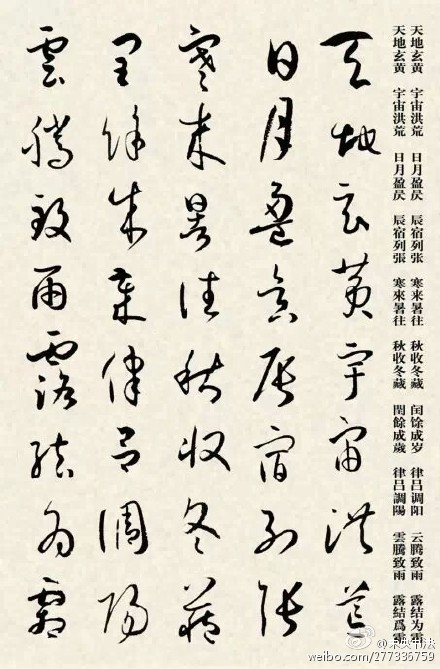 天地玄黄 宇宙洪荒 日月盈昃 辰宿列张 寒来暑往 秋收冬藏 闰馀成岁 律吕调阳 云腾致雨 露结为霜
天地玄黃 宇宙洪荒 日月盈昃 辰宿列張 寒來暑往 秋收冬藏 閏餘成歲 律呂調陽 雲騰致雨 露結爲霜
天地玄黃宇宙洪荒
日月盈昃辰宿列張
寒來暑往秋收冬藏
閏餘成歲律呂調陽
雲騰致雨露結爲霜
weibo.com/277336759